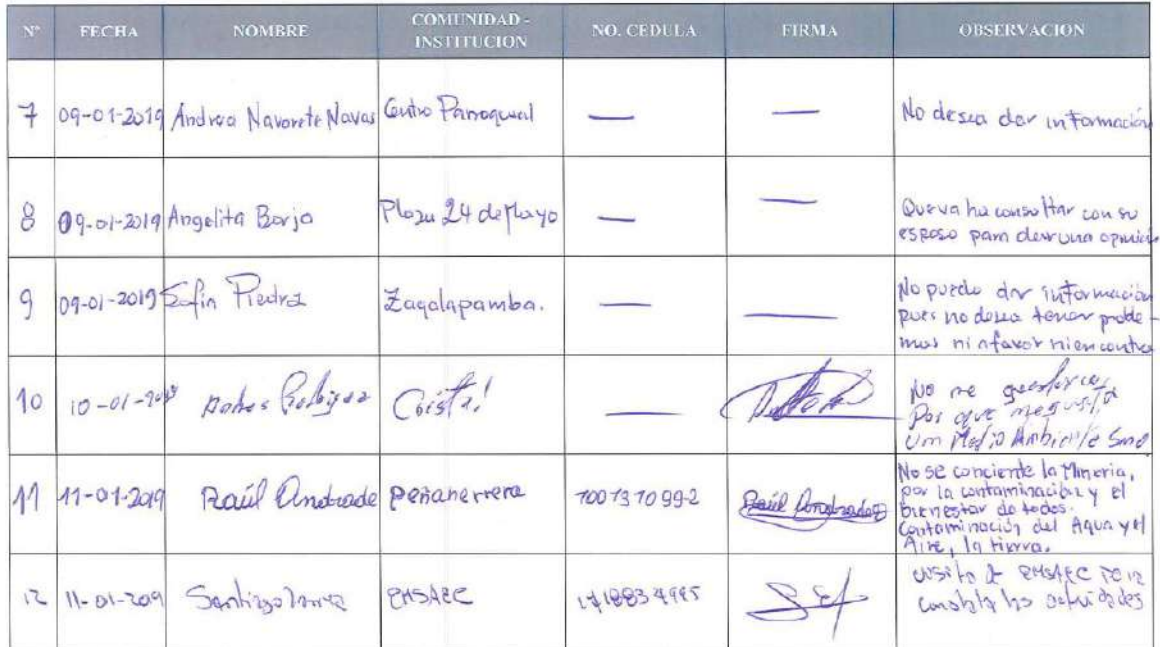 N° FECHA NOMBRE COMUNIDAD - INSTITUCION NO. CEDULA FIRMA OBSERVACION
7 09-01-2019 Andrea Navarete Navas Centro Parroquial — — No desea dar información
8 09-01-2019 Angelita Borja Plaza 24 de Mayo — — Que va ha consultar con su
esposo para dar una opinión
9 09-01-2019 Piedra Zagalapamba. — — No puedo dar información
pues no desea tener proble-
mas ni afavor ni en contra
10 10-01- Cristal — No me
Por que me gusta
um Medio Ambiente Sano
11 11-01-2019 Raúl Andrade Peñaherrera 100131099-2 Raúl Andrade No se conciente la Mineria,
por la contaminación y el
bienestar de todos.
Contaminación del Agua y el
Aire, la tierra.
12 11-01-2019 Santiago EMSAEC
constata las actividades